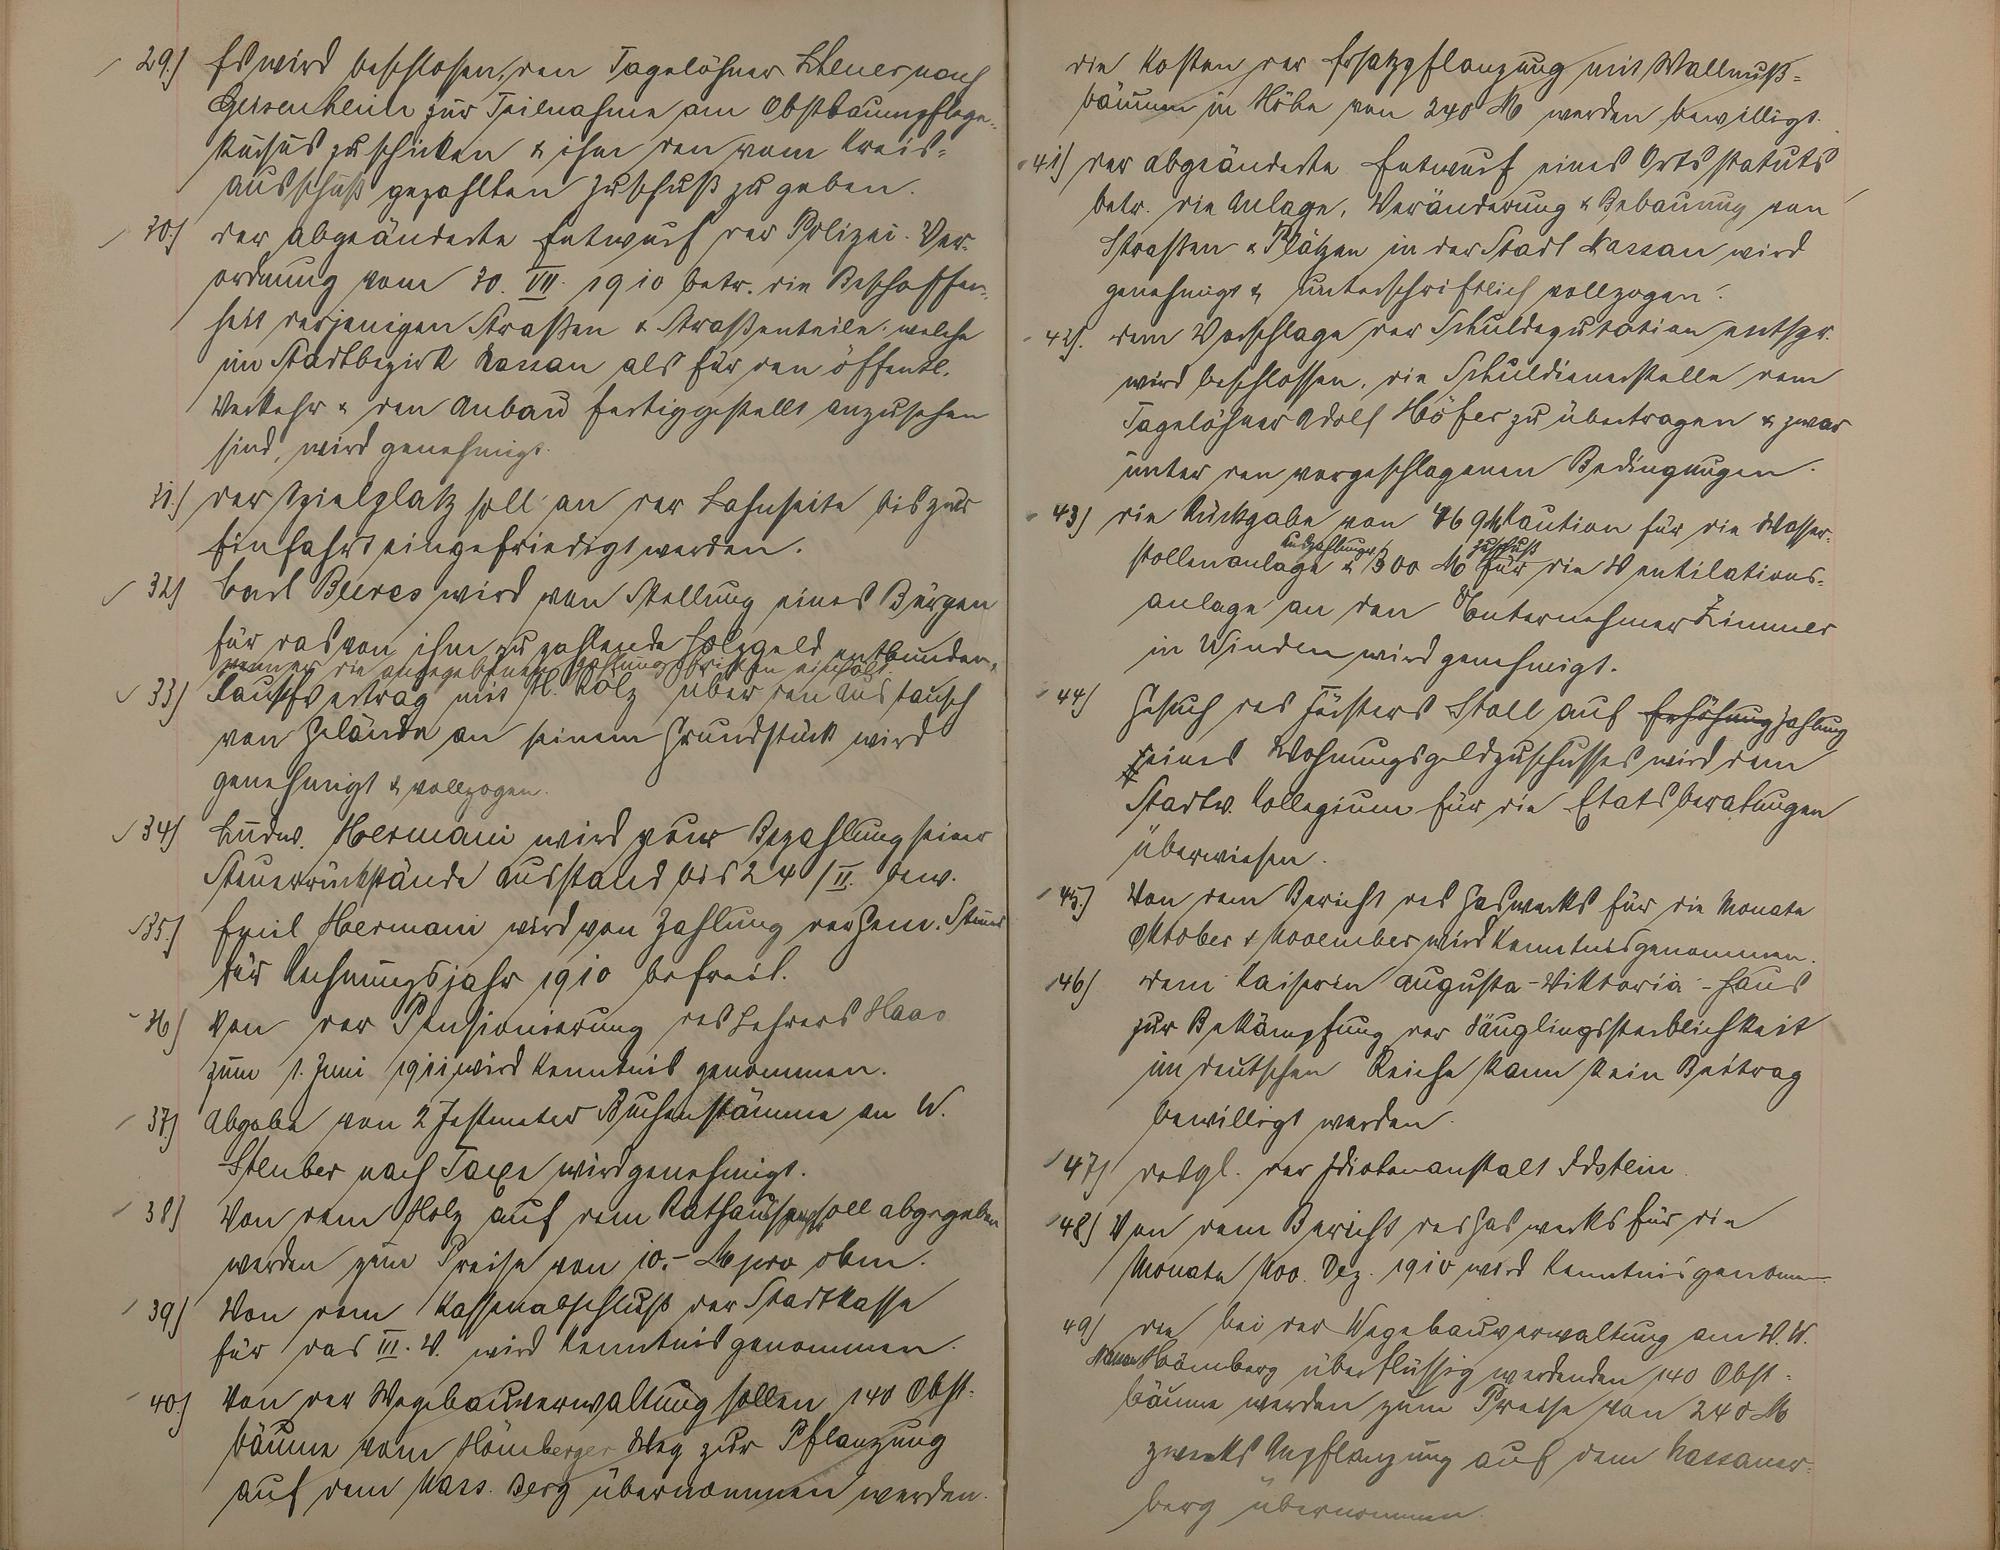 29.) Es wird beschlossen, den Tagelöhner Steuer nach
Geisenheim zur Teilnahme am Obstbaumpflege-
kursus zu schicken & ihm den vom Kreis-
ausschuß gezahlten Zuschuß zu geben.
30.) der abgeänderte Entwurf der Polizei-Ver-
ordnung vom 30. VII. 1910 betr. die Beschaffen-
heit derjenigen Straßen & Straßenteile, welche
im Stadtbezirk Nassau als für den öffentl.
Verkehr & den Anbau fertiggestellt anzusehen
sind, wird genehmigt.
31.) der Spielplatz soll an der Lahnseite bis zur
Einfahrt eingefriedigt werden.
32) Carl Beeres wird von Stellung eines Bürgen
für das von ihm zu zahlende Holzgeld entbunden,
wenn er die angegebenen Zahlungsfristen einhält.
33) Tauschvertrag mit H. Kölz über den Austausch
von Gelände an seinem Grundstück wird
genehmigt & vollzogen.
34) Ludw. Hermani wird zur Bezahlung seiner
Steuerrückstände Ausstand bis 24/II. bew.
35.) Emil Hermani wird von Zahlung der Gem. Steuer
für Rechnungsjahr 1910 befreit.
36) Von der Pensionierung des Lehrers Haas
zum 1. Juni 1911 wird Kenntnis genommen.
37.) Abgabe von 2 Festmeter Buchenstämme an W.
Steuber nach Taxe wird genehmigt.
38) Von dem Holz auf dem Rathaus soll abgegeben
werden zum Preise von 10,- M pro cbm.
39) Von dem Kassenabschluß der Stadtkasse
für das III. V. wird Kenntnis genommen.
40.) Von der Wegebauverwaltung sollen 140 Obst-
bäume vom Hömberger Weg zur Pflanzung
auf dem Nass. Berg übernommen werden.
die Kosten der Ersatzpflanzung mit Wallnuß-
bäumen in Höhe von 240 M werden bewilligt.
41) der abgeänderte Entwurf eines Ortsstatuts
betr. die Anlage, Veränderung & Bebauung von
Straßen & Plätzen in der Stadt Nassau wird
genehmigt & unterschriftlich vollzogen.
42). dem Vorschlage der Schuldeputation entspr.
wird beschlossen, die Schuldienerstelle dem
Tagelöhner Adolf Höfer zu übertragen & zwar
unter den vorgeschlagenen Bedingungen.
43) die Rückgabe von 469 M Kaution für die Wasser-
stollenanlage & Auszahlung v. 300 M Zuschuß für die Ventilations-
anlage an den Unternehmer Zimmer
in Winden wird genehmigt.
44) Gesuch des Försters Stoll auf Erhöhung Zahlung
eines Wohnungsgeldzuschusses wird dem
Stadtv. Kollegium für die Etatsberatungen
überwiesen.
45.) Von dem Bericht des Gaswerks für die Monate
Oktober & November wird Kenntnis genommen.
46) dem Kaiserin Augusta-Viktoria-Haus
zur Bekämpfung der Säuglingssterblichkeit
im deutschen Reiche kann kein Beitrag
bewilligt werden.
47) desgl. der Idiotenanstalt Idstein.
48) Von dem Bericht des Gaswerks für die
Monate Nov. Dez. 1910 wird Kenntnis genommen.
49) die bei der Wegebauverwaltung am V. W.
Nassau Hömberg überflüssig werdenden 140 Obst-
bäume werden zum Preise von 240 M
zwecks Anpflanzung auf dem Nassauer-
berg übernommen.